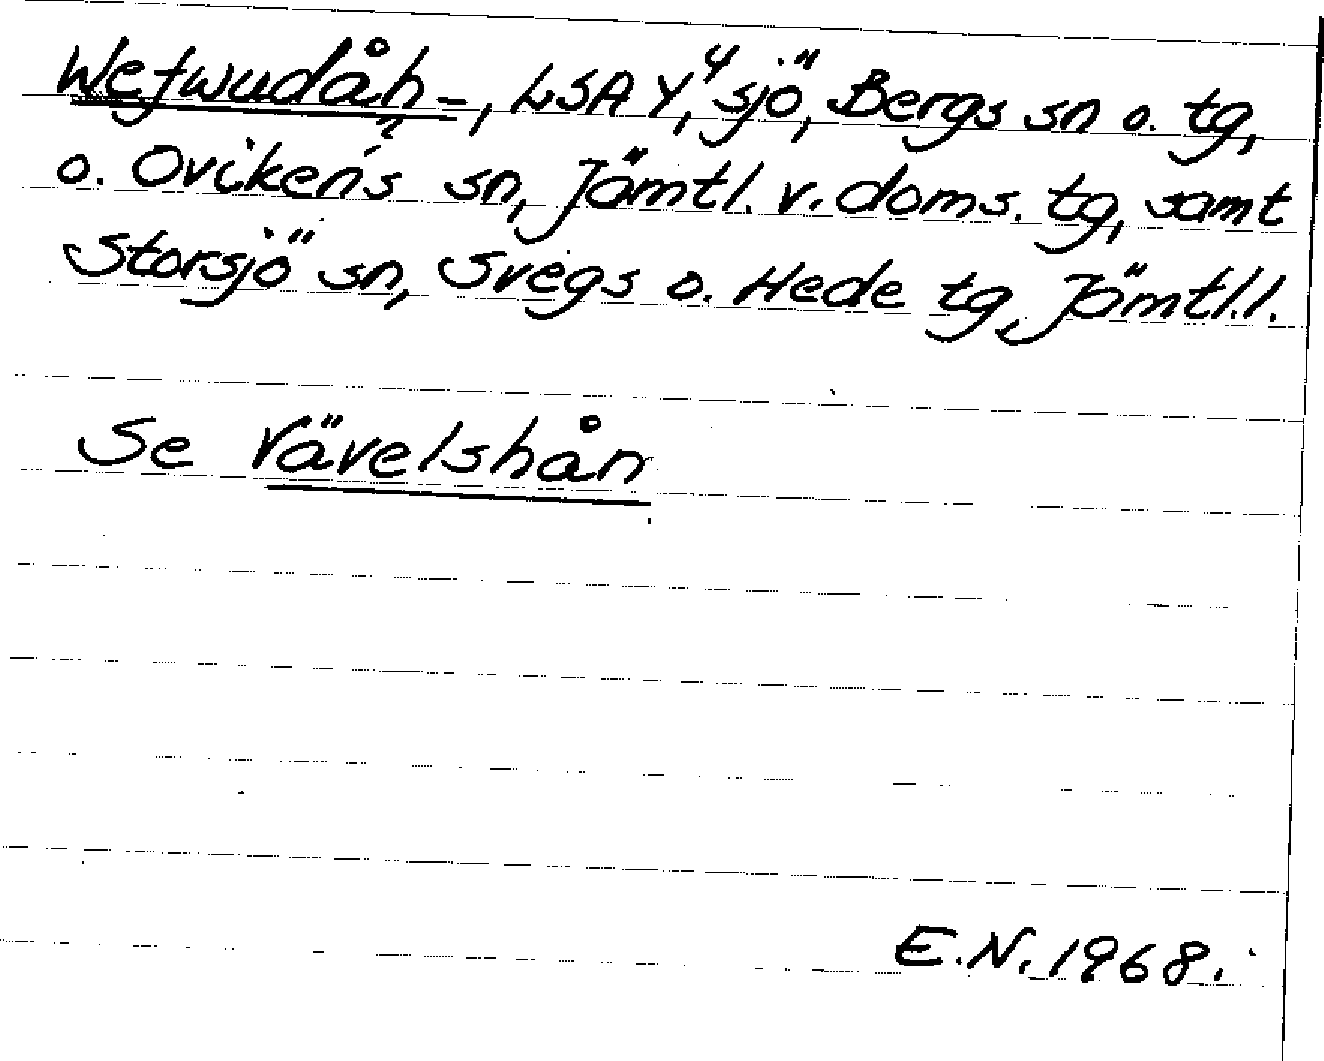 Wefwudåh-, LSA Y⁴, sjö, Bergs sn o. tg,
o. Ovikens sn, Jämtl. v. doms. tg, samt
Storsjö sn, Svegs o. Hede tg, Jämtl.l.
Se Vävelshån
E.N. 1968.